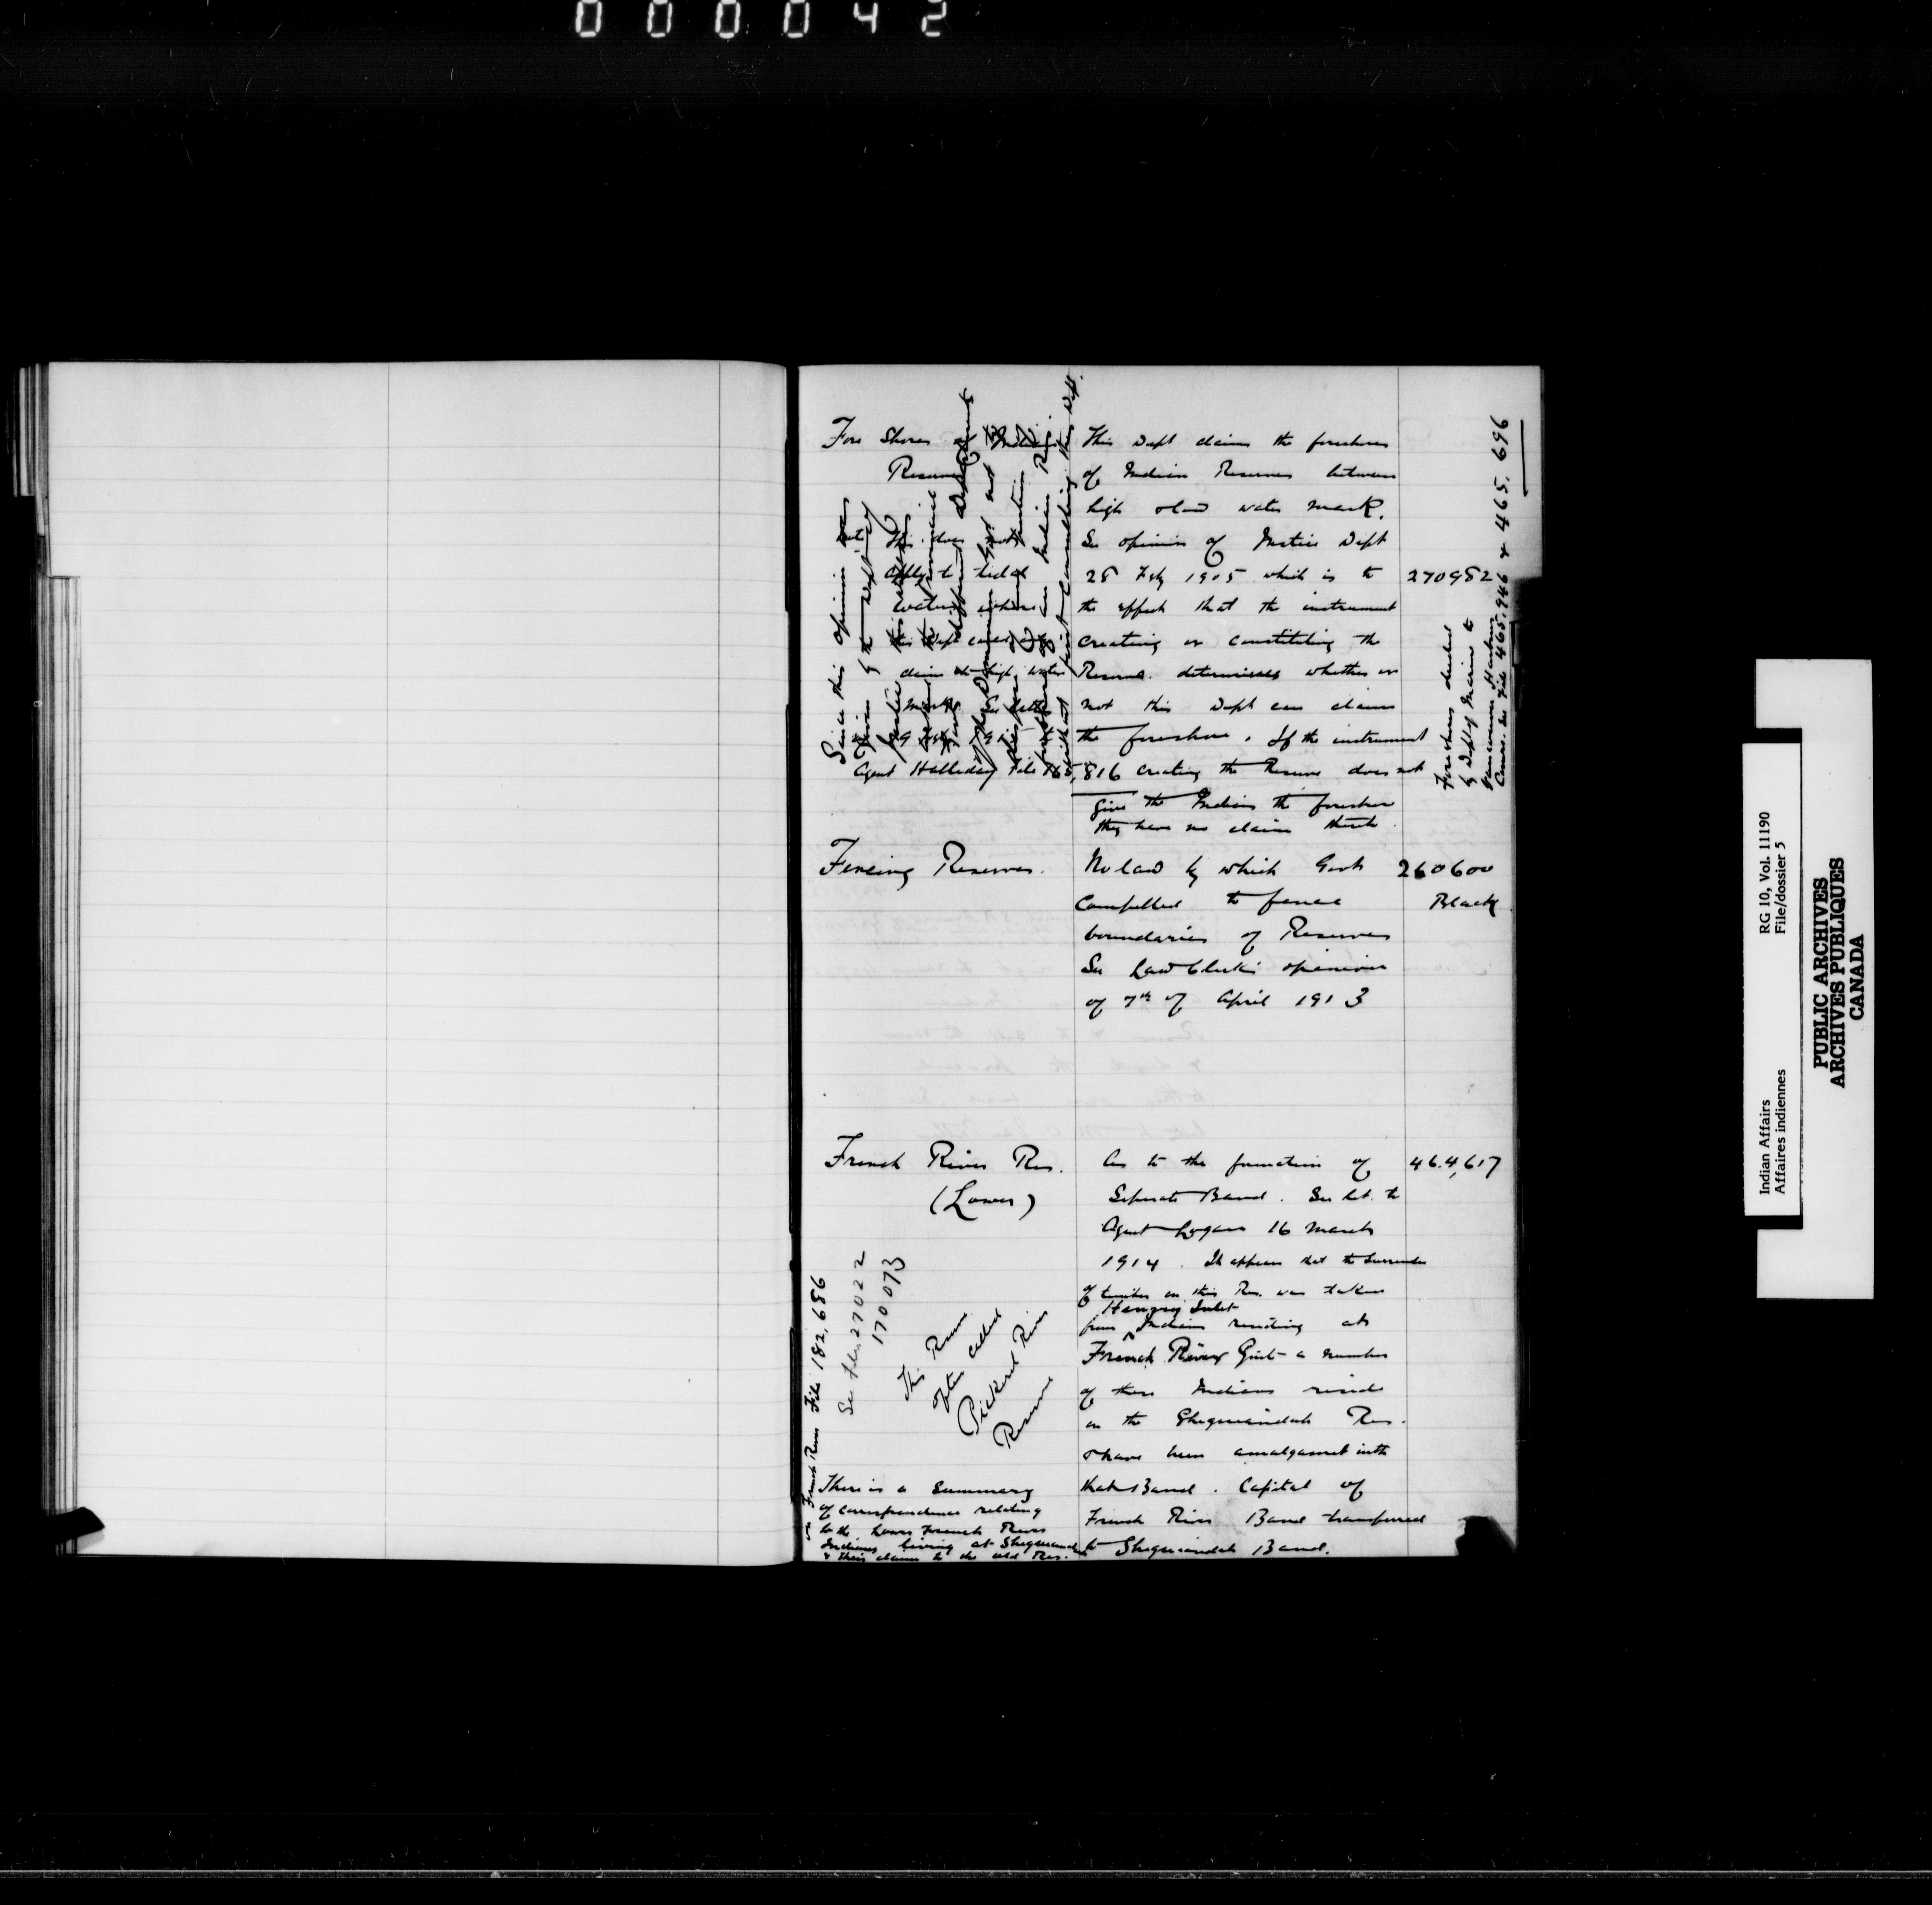 000042
Fore Shores of Indian
Reserves
but this does not
apply to tidal
waters where
this Dept cannot
claim to high water
mark. See letter
Agent Halliday File 165,816
This Dept claims the foreshores
of Indian Reserves between
high & low water mark.
See opinion of Justice Dept
25 Feby 1905 which is to
the effect that the instrument
creating or constituting the
Reserve determines whether or
not this Dept can claim
the foreshore. If the instrument
creating the Reserve does not
give the Indians the foreshore
they have no claim thereto.
270952
Since this opinion was
given by the Dept of
Justice
Foreshores decided
by Dept of Marine to
Vancouver Harbour
Comrs. See File 465,946 & 465,696
Fencing Reserves.
No law by which Govt
compelled to fence
boundaries of Reserves
See Law Clerk's opinion
of 7th of April 1913
260600
Black
French River Res.
(Lower)
As to the formation of
Separate Band. See let. to
Agent Logan 16 March
1914. It appears that the surrender
of timber on this Res. was taken
from Henvey Inlet Indians residing at
French River Gint a number
of these Indians reside
on the Sheguiandah Res.
& have been amalgamated with
that Band. Capital of
French River Band transferred
to Sheguiandah Band.
464,617
See files 27022
170073
This Reserve
often called
Pickerel River
Reserve
There is a summary
of correspondence relating
to the Lower French River
Indians living at Sheguiandah
& their claim to the old Res.
on French River File 182,686
Indian Affairs
Affaires indiennes
RG 10, Vol. 11190
File/dossier 5
PUBLIC ARCHIVES
ARCHIVES PUBLIQUES
CANADA